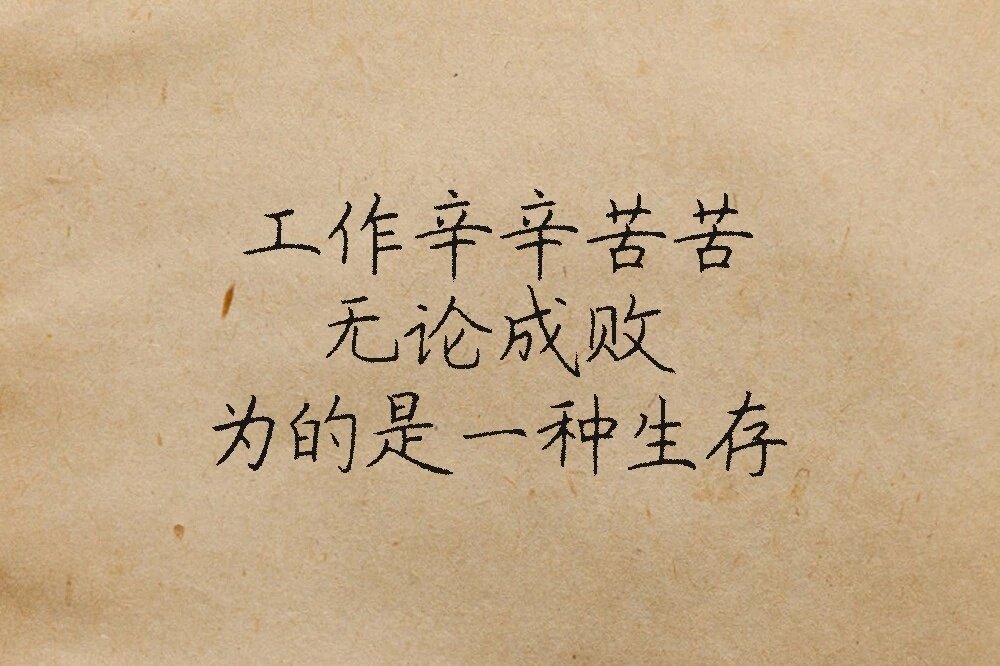 工作辛辛苦苦
无论成败
为的是一种生存